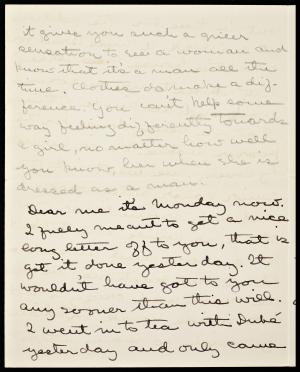 it gives you such a queer
sensation to see a woman and
know that it's a man all the
time. Clothes do make a dif-
ference. You can't help some
way feeling differently towards
a girl, no matter how well
you know her when she is
dressed as a man.
Dear me it's Monday now.
I freely meant to get a nice
long letter off to you, that is
get it done yesterday. It
wouldn't have got to you
any sooner than this will.
I went in to tea with Dubé
yesterday and only came